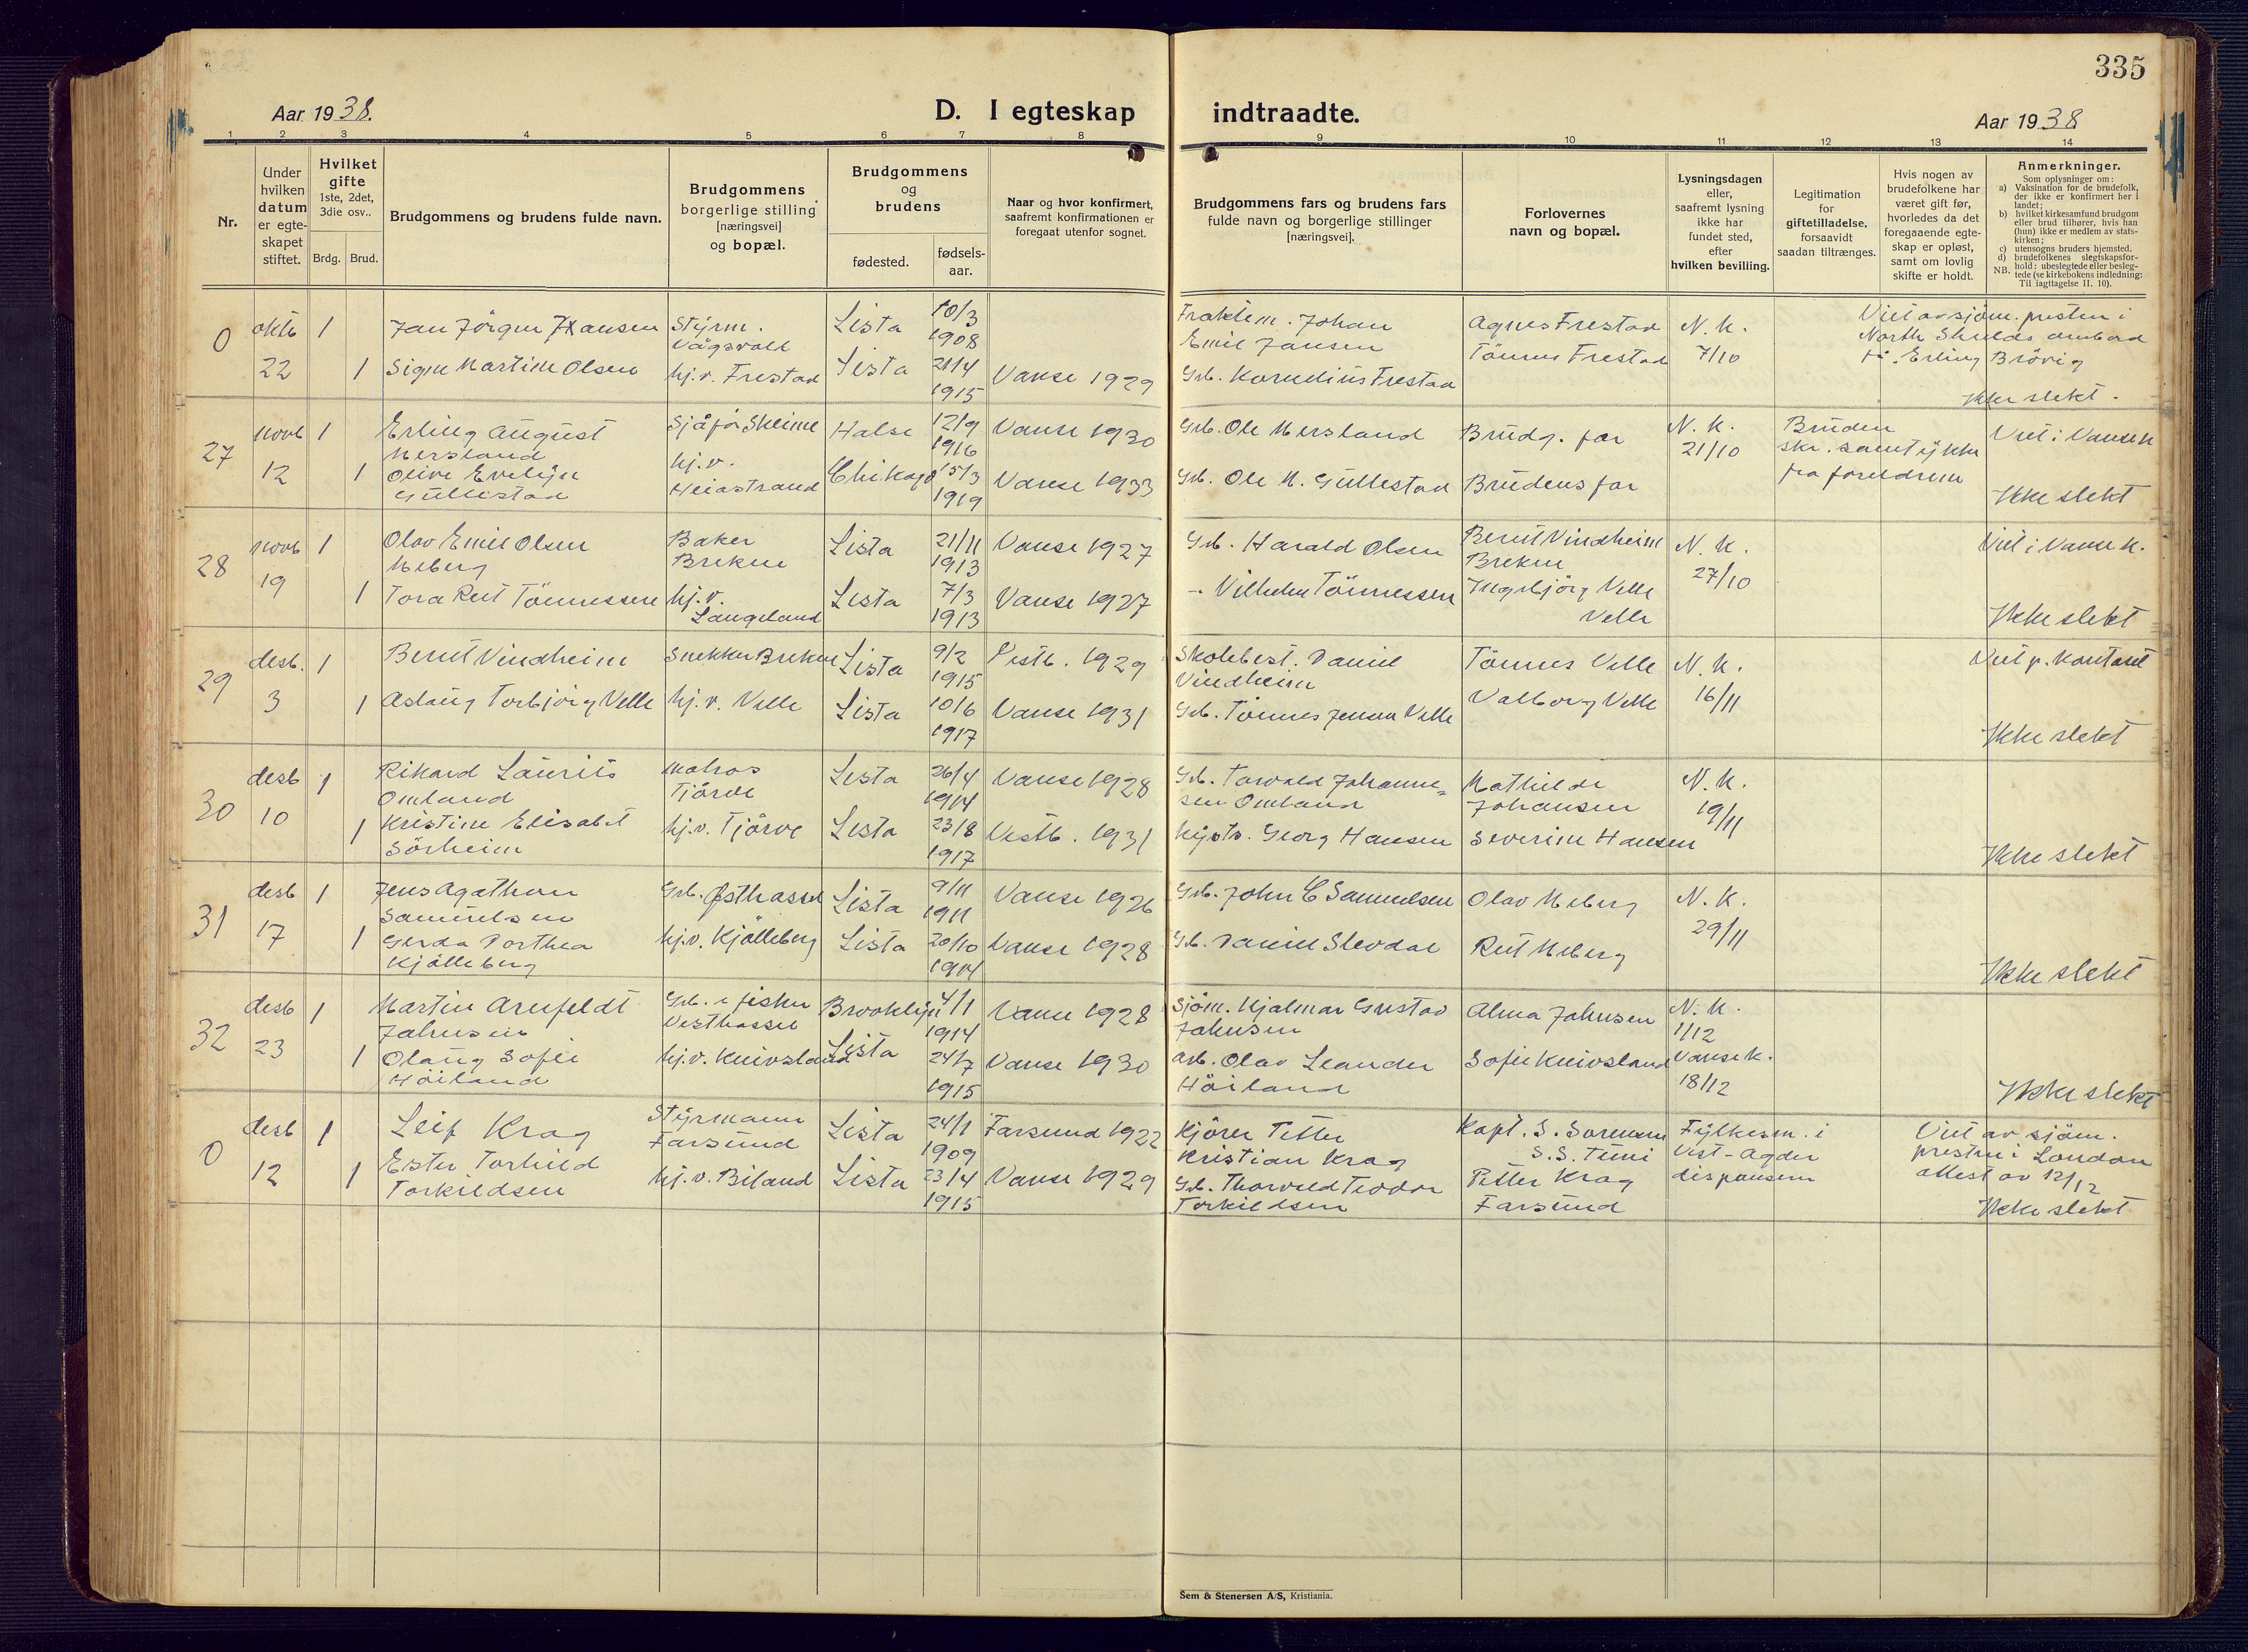 335
Aar 1938.
D. I egteskap indtraadte.
Aar 1938
1 2 3 4 5 6 7 8 9 10 11 12 13 14
Nr.
Under
hvilken
datum
er egte-
skapet
stiftet.
Hvilket
gifte
1ste, 2det,
3die osv..
Brdg. Brud.
Brudgommens og brudens fulde navn.
Brudgommens
borgerlige stilling
[næringsvei]
og bopæl.
Brudgommens
og
brudens
fødested.
fødsels-
aar.
Naar og hvor konfirmert,
saafremt konfirmationen er
foregaat utenfor sognet.
Brudgommens fars og brudens fars
fulde navn og borgerlige stillinger
[næringsvei].
Forlovernes
navn og bopæl.
Lysningsdagen
eller,
saafremt lysning
ikke har
fundet sted,
efter
hvilken bevilling.
Legitimation
for
giftetilladelse,
forsaavidt
saadan tiltrænges.
Hvis nogen av
brudefolkene har
været gift før,
hvorledes da det
foregaaende egte-
skap er opløst,
samt om lovlig
skifte er holdt.
Anmerkninger.
Som oplysninger om:
a) Vaksination for de brudefolk,
der ikke er konfirmert her i
landet;
b) hvilket kirkesamfund brudgom
eller brud tilhører, hvis han
(hun) ikke er medlem av stats-
kirken;
c) utensogns bruders hjemsted.
d) brudefolkenes slegtskapsfor-
hold: ubeslegtede eller besleg-
NB. tede (se kirkebokens indledning:
Til iagttagelse II. 10).
0
oktb
22
1
1
Jan Jörgen Hansen
Signe Martine Olsen
Styrm.
Vågsvoll
hj.v. Frestad
Lista
Lista
10/3
1908
21/4
1915
Vanse 1929
Johan
Emil Jansen
Grb. Kornelius Frestad
Agnes Frestad
Tönnes Frestad
N. K.
7/10
Viet av sjöm. presten i
North Shields ombord
Erling Brövig
Ikke slekt.
27
novb
12
1
1
Erling August
Mersland
Olive Evelyn
Gullestad
Sjåför Skeime
hj.v.
Heiastrand
Halse
Chikago
12/9
1916
15/3
1919
Vanse 1930
Vanse 1933
Grb. Ole Mersland
Grb. Ole M. Gullestad
Brudg. far
Brudens far
N. K.
21/10
Bruden
skr. samtykke
fra foreldrene
Viet i Vanse K
Ikke slekt
28
novb
19
1
1
Olav Emil Olsen
Meberg
Tora Rut Tönnessen
Baker
Brekne
hj.v.
Langeland
Lista
Lista
21/11
1913
7/3
1913
Vanse 1927
Vanse 1927
Grb. Harald Olsen
-. Vilhelm Tönnessen
Berut Vindheim
Brekne
Ingebjörg Velle
Velle
N. K.
27/10
Viet i Vanse K.
Ikke slekt
29
desb.
3
1
1
Berut Vindheim
Aslaug Torbjörg Velle
Snekker Brekne
hj.v. Velle
Lista
Lista
9/2
1915
10/6
1917
Vestb. 1929
Vanse 1931
Skolebest. Daniel
Vindheim
Grb. Tönnes Jensen Velle
Tönnes Velle
Valborg Velle
N. K.
16/11
Viet p. kontoret
Ikke slekt
30
desb
10
1
1
Rikard Laurits
Omland
Kristine Elisabet
Sörheim
Matros
Tjörve
hj.v. Tjörve
Lista
Lista
26/4
1914
23/8
1917
Vanse 1928
Vestb. 1931
Grb. Torvald Johanne-
sen Omland
Georg Hansen
Mathilde
Johansen
Severine Hansen
N. K.
19/11
Ikke slekt
31
desb
17
1
1
Jens Agathon
Samuelsen
Gerda Dorthea
Kjölleberg
Grb. Østhassel
hj.v. Kjölleberg
Lista
Lista
9/11
1911
20/10
1914
Vanse 1926
Vanse 1928
Grb. John C Samuelsen
Grb. Daniel Slevdal
Olav Meberg
Rut Meberg
N. K.
29/11
Ikke slekt
32
desb
23
1
1
Martin Arnfeldt
Jahnsen
Olaug Sofie
Höiland
Grb. e fisker
Vesthassel
hj.v. Knivsland
Brooklyn
Lista
4/1
1914
24/7
1915
Vanse 1928
Vanse 1930
Sjöm. Hjalmar Gustav
Jahnsen
arb. Olav Leander
Höiland
Alma Jahnsen
Sofie Knivsland
N. K.
1/12
Vanse K.
18/12
Ikke slekt
0
desb
12
1
1
Leif Krag
Ester Torhild
Torkildsen
Styrmann
Farsund
hj.v. Biland
Lista
Lista
24/1
1909
23/4
1915
Farsund 1922
Vanse 1929
Kjörer Petter
Kristian Krag
Grb. Thorvald Teodor
Torkildsen
Kapt. S. Sorensen
S.S. Temi
Petter Krag
Farsund
Fylkesm. i
Vest-Agder
dispensem
Viet av sjöm.
presten i London
attest av 12/12
Ikke slekt
Sem & Stenersen A/S, Kristiania.